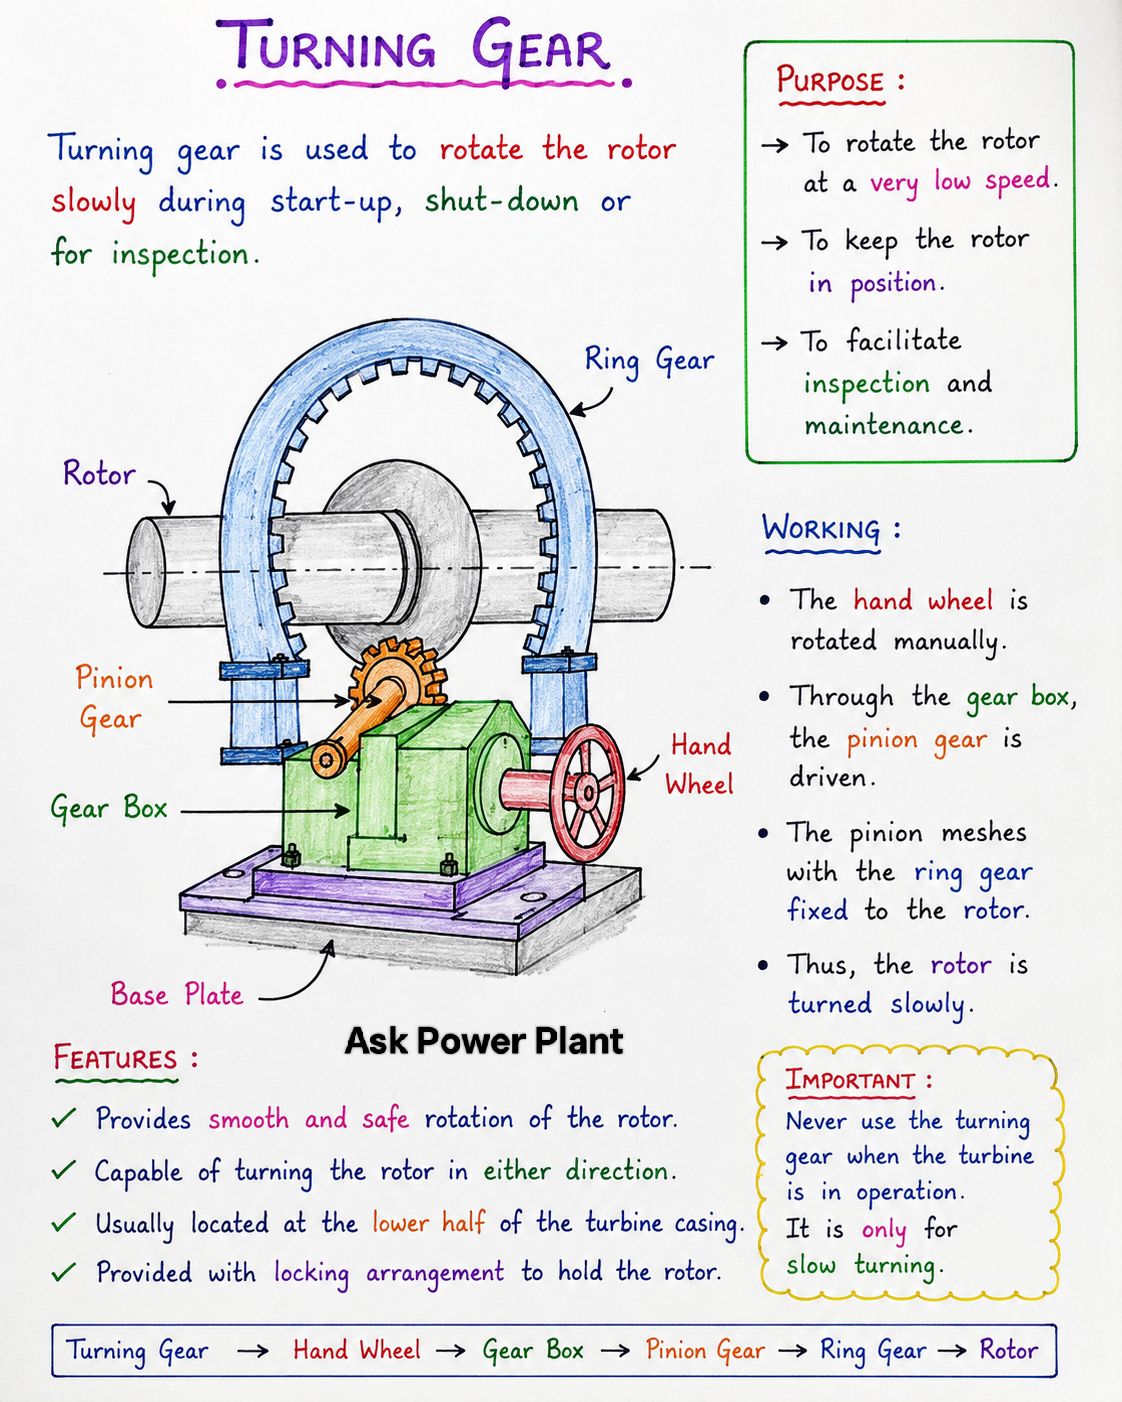 TURNING GEAR
Turning gear is used to rotate the rotor
slowly during start-up, shut-down or
for inspection.
PURPOSE :
→ To rotate the rotor
at a very low speed.
→ To keep the rotor
in position.
→ To facilitate
inspection and
maintenance.
Ring Gear
Rotor
Pinion
Gear
Gear Box
Hand
Wheel
Base Plate
WORKING :
• The hand wheel is
rotated manually.
• Through the gear box,
the pinion gear is
driven.
• The pinion meshes
with the ring gear
fixed to the rotor.
• Thus, the rotor is
turned slowly.
Ask Power Plant
FEATURES :
✓ Provides smooth and safe rotation of the rotor.
✓ Capable of turning the rotor in either direction.
✓ Usually located at the lower half of the turbine casing.
✓ Provided with locking arrangement to hold the rotor.
IMPORTANT :
Never use the turning
gear when the turbine
is in operation.
It is only for
slow turning.
Turning Gear → Hand Wheel → Gear Box → Pinion Gear → Ring Gear → Rotor